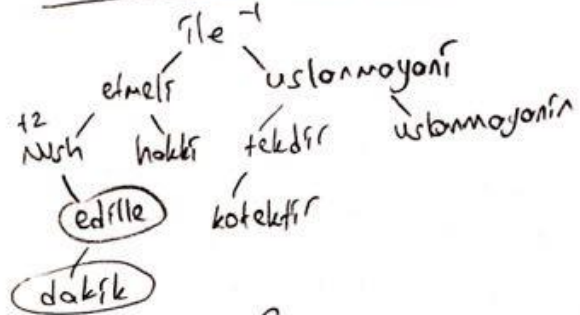 ile -1
etmeli uslanmayani
+2
Nush hakki tekdir uslanmayanin
edille kotektir
dakik